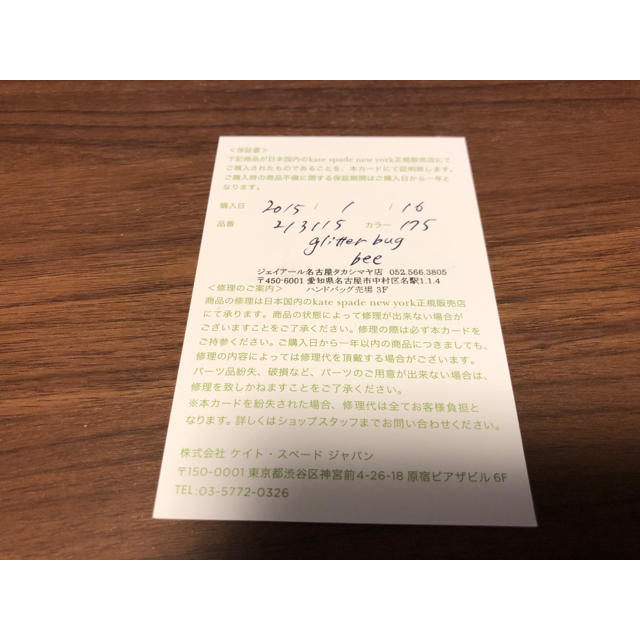 ＜保証書＞
下記商品が日本国内のkate spade new york正規販売店にて
ご購入されたものであることを、本カードにて証明致します。
ご購入時の商品不備に関する保証期間はご購入日から一年と
なります。
購入日 2015 / 1 / 16
品番 213115 カラー 175
glitter bug
bee
ジェイアール名古屋タカシマヤ店 052.566.3805
〒450-6001 愛知県名古屋市中村区名駅1.1.4
＜修理のご案内＞ ハンドバッグ売場 3F
商品の修理は日本国内のkate spade new york正規販売店
にて承ります。商品の状態によって修理が出来ない場合が
ございますことをご了承ください。修理の際は必ず本カードを
ご持参ください。ご購入日から一年以内の商品につきましても、
修理の内容によっては修理代を頂戴する場合がございます。
パーツ品紛失、破損など、パーツのご用意が出来ない場合は、
修理を致しかねますことをご了承ください。
※本カードを紛失された場合、修理代は全てお客様負担と
なります。詳しくはショップスタッフまでお問い合わせください。
株式会社 ケイト・スペード ジャパン
〒150-0001 東京都渋谷区神宮前4-26-18 原宿ピアザビル 6F
TEL:03-5772-0326